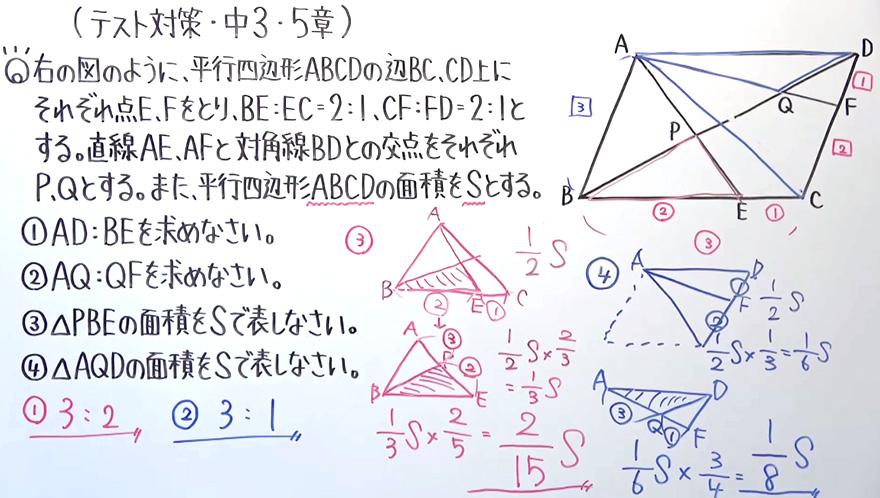 (テスト対策・中3・5章)
Q 右の図のように、平行四辺形ABCDの辺BC、CD上に
それぞれ点E、Fをとり、BE:EC=2:1、CF:FD=2:1と
する。直線AE、AFと対角線BDとの交点をそれぞれ
P、Qとする。また、平行四辺形ABCDの面積をSとする。
①AD:BEを求めなさい。
②AQ:QFを求めなさい。
③△PBEの面積をSで表しなさい。
④△AQDの面積をSで表しなさい。
① 3:2
② 3:1
A
D
3
1
Q
F
P
2
B
②
E
①
C
③
③
A
1/2 S
B
E
C
②
①
A
③
P
②
B
E
1/2 S × 2/3
= 1/3 S
1/3 S × 2/5 = 2/15 S
④
A
D
①
F
②
1/2 S
1/2 S × 1/3 = 1/6 S
A
D
③
Q
①
F
1/6 S × 3/4 = 1/8 S